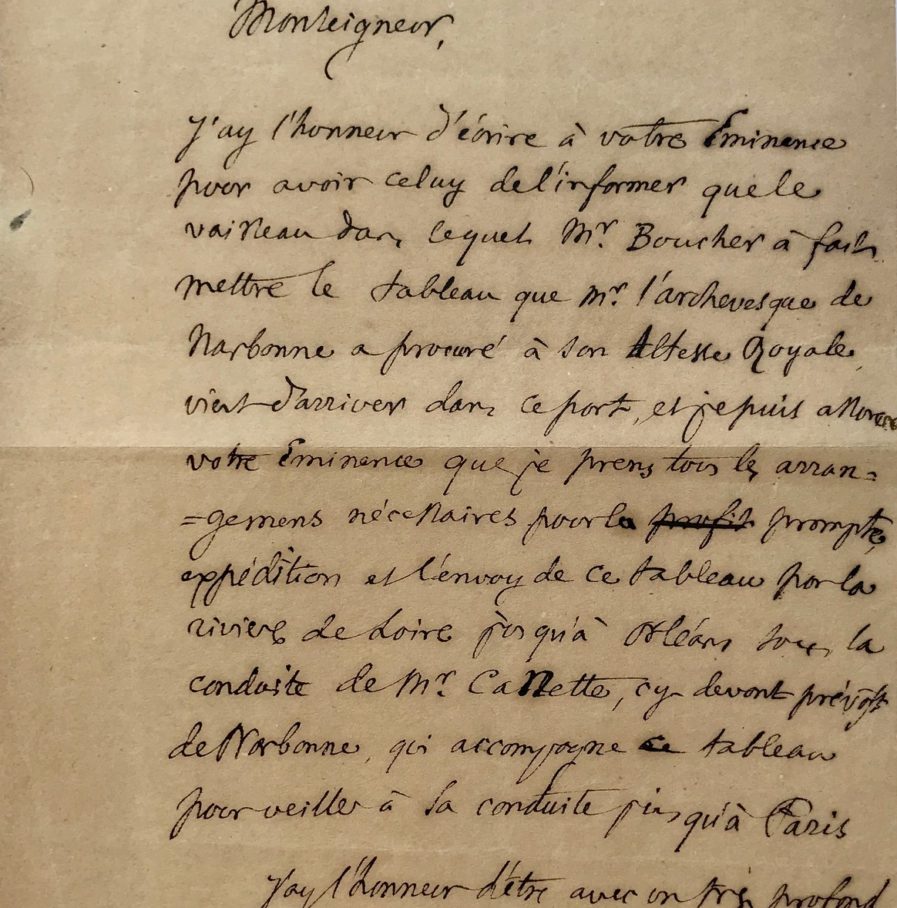 Monseigneur,
J'ay l'honneur d'écrire à votre Eminence
pour avoir celuy de l'informer que le
vaisseau dans lequel Mr. Boucher à fait
mettre le tableau que mr. l'archevesque de
Narbonne a procuré à son Altesse Royale,
vient d'arriver dans ce port, et je puis assurer
votre Eminence que je prens tous les arran=
=gemens nécessaires pour la profit prompte
expédition et l'envoy de ce tableau par la
riviere de Loire jusqu'à Orléans sous la
conduite de Mr. Cassette, cy devant prévost
de Narbonne, qui accompagne ce tableau
pour veiller à sa conduite jusqu'à Paris
J'ay l'honneur d'être avec un très profond